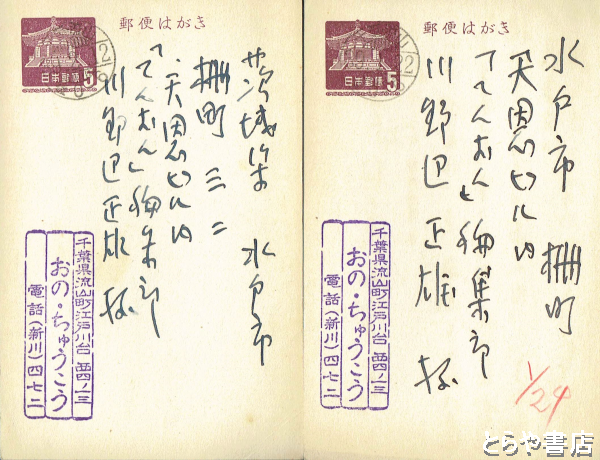 郵便はがき
日本郵便
5
茨城県 水戸市
柵町 三二
天恩ビル内
「てんおん」編集部
川野辺正雄 様
千葉県流山町江戸川台西四ノ一三
おの・ちゅうこう
電話(新川)四七二
郵便はがき
日本郵便
5
22
水戸市 柵町
天恩ビル内
「てんおん」編集部
川野辺 正雄 様
千葉県流山町江戸川台西四ノ一三
おの・ちゅうこう
電話(新川)四七二
1/24
とらや書店